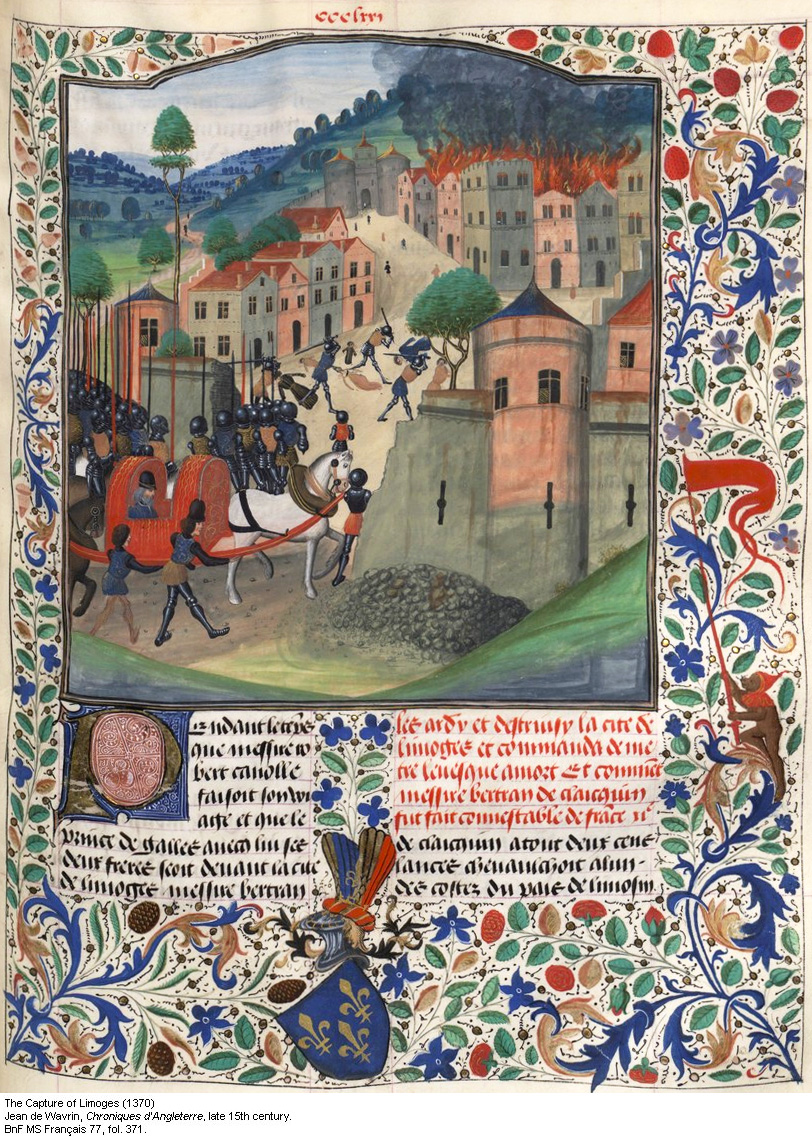 ccclxxi
Pendant le temps
que messire ro
bert canolle
faisoit son voi
aige et que le
prince de galles avecq lui ses
deux freres seoit devant la cite
de limoges messire bertran
les ardy et destruisy la cite de
limoges et commanda de me
tre levesque a mort Et comment
messire bertran de claicquin
fut fait connestable de france
de claicquin atout deux cens
lances chevaulchoit a lun-
des costez du pais de limosin
The Capture of Limoges (1370)
Jean de Wavrin, Chroniques d'Angleterre, late 15th century.
BnF MS Français 77, fol. 371.